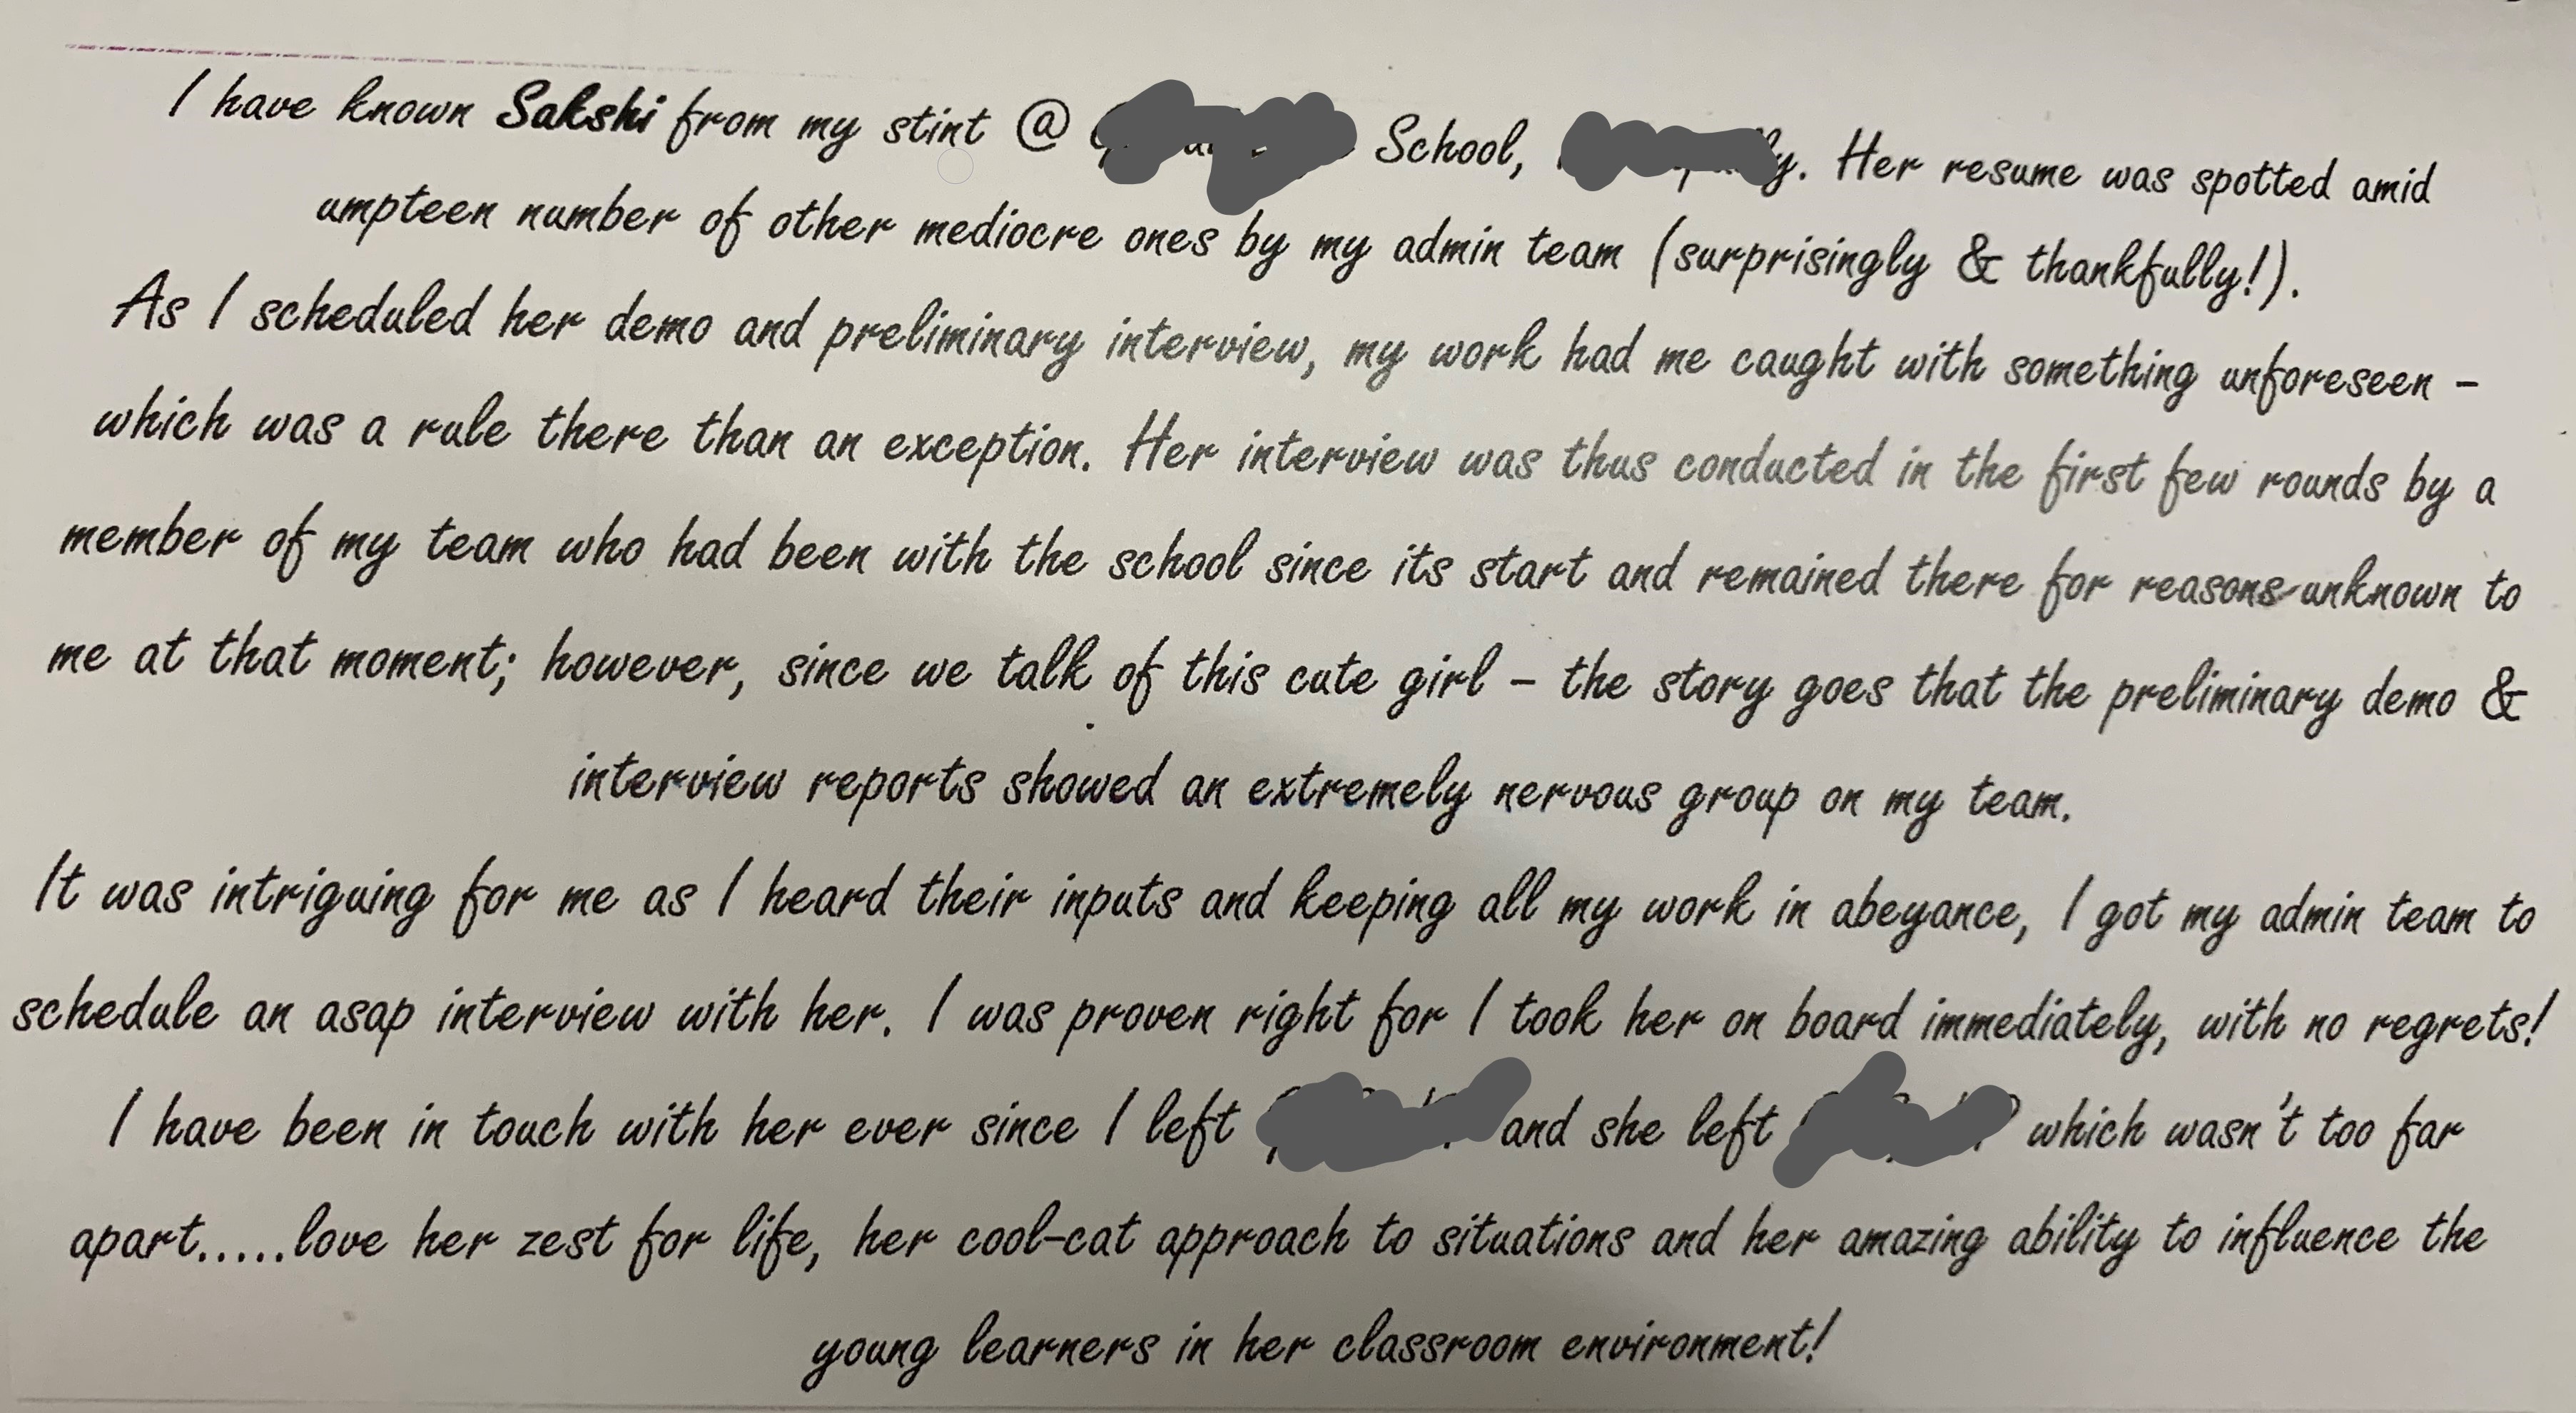 I have known Sakshi from my stint @ School, Her resume was spotted amid
umpteen number of other mediocre ones by my admin team (surprisingly & thankfully!).
As I scheduled her demo and preliminary interview, my work had me caught with something unforeseen –
which was a rule there than an exception. Her interview was thus conducted in the first few rounds by a
member of my team who had been with the school since its start and remained there for reasons unknown to
me at that moment; however, since we talk of this cute girl – the story goes that the preliminary demo &
interview reports showed an extremely nervous group on my team.
It was intriguing for me as I heard their inputs and keeping all my work in abeyance, I got my admin team to
schedule an asap interview with her. I was proven right for I took her on board immediately, with no regrets!
I have been in touch with her ever since I left and she left which wasn't too far
apart.....love her zest for life, her cool-cat approach to situations and her amazing ability to influence the
young learners in her classroom environment!